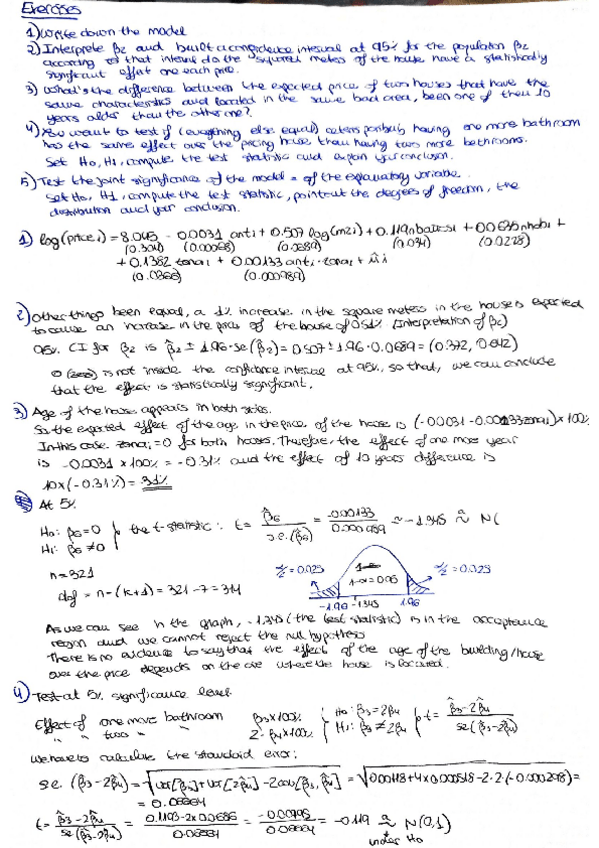 Exercises
1) Write down the model
2) Interprete β2 and built a confidence interval at 95% for the population β2
according to that interval do the squared meters of the house have a statistically
significant effect one each price.
3) What's the difference between the expected price of two houses that have the
same characteristics and located in the same bad area, been one of them 10
years older than the other one?
4) You want to test if (everything else equal) ceteris paribus, having one more bathroom
has the same effect over the pricing house than having two more bedrooms.
Set Ho, H1, compute the test statistic and explain your conclusion.
5) Test the joint significance of the model = of the explanatory variable.
Set Ho, H1, compute the test statistic, point out the degrees of freedom, the
distribution and your conclusion.
1) log(price i) = 8.045 - 0.0031 ant i + 0.507 log(m2i) + 0.119 nbaños i + 0.0635 nhab i +
(0.304) (0.00068) (0.0689) (0.034) (0.0228)
+ 0.1382 zona i + 0.00133 ant i · zona i + û i
(0.0366) (0.000989)
2) Other things been equal, a 1% increase in the square meters in the house is expected
to cause an increase in the price of the house of 0.51%. (Interpretation of β2)
95% CI for β2 is β̂2 ± 1.96·se(β̂2) = 0.507 ± 1.96 · 0.0689 = (0.372, 0.642)
0 (zero) is not inside the confidence interval at 95%, so that, we can conclude
that the effect is statistically significant.
3) Age of the house appears in both sites.
So the expected effect of the age in the price of the house is (-0.0031 - 0.00133 zona i) × 100%
In this case zona i = 0 for both houses. Therefore, the effect of one more year
is -0.0031 × 100% = -0.31% and the effect of 10 years difference is
10 × (-0.31%) = 3.1%
At 5%
Ho: β6 = 0
H1: β6 ≠ 0 } the t-statistic: t = β̂6 / s.e.(β̂6) = -0.00133 / 0.000989 ≈ -1.345 ≈ N(
n = 321
dof = n - (k+1) = 321 - 7 = 314
α/2 = 0.025 1-α = 0.95 α/2 = 0.025
-1.96 -1.345 1.96
As we can see in the graph, -1.345 (the test statistic) is in the acceptance
region and we cannot reject the null hypothesis
There is no evidence to say that the effect of the age of the building/house
over the price depends on the are where the house is located.
4) Test at 5% significance level
Effect of one more bathroom β3 × 100%
" " two " " 2·β4 × 100% { Ho: β3 = 2β4 H1: β3 ≠ 2β4 } t = β̂3 - 2β̂4 / se(β̂3 - 2β̂4)
We have to calculate the standard error:
s.e. (β̂3 - 2β̂4) = √var[β̂3] + var[2β̂4] - 2cov[β̂3, β̂4] = √0.00118 + 4 × 0.000518 - 2·2·(-0.000298) =
= 0.06664
t = β̂3 - 2β̂4 / se(β̂3 - 2β̂4) = 0.1193 - 2 × 0.0636 / 0.06664 = -0.00795 / 0.06664 = -0.119 ≈ N(0,1)
under Ho